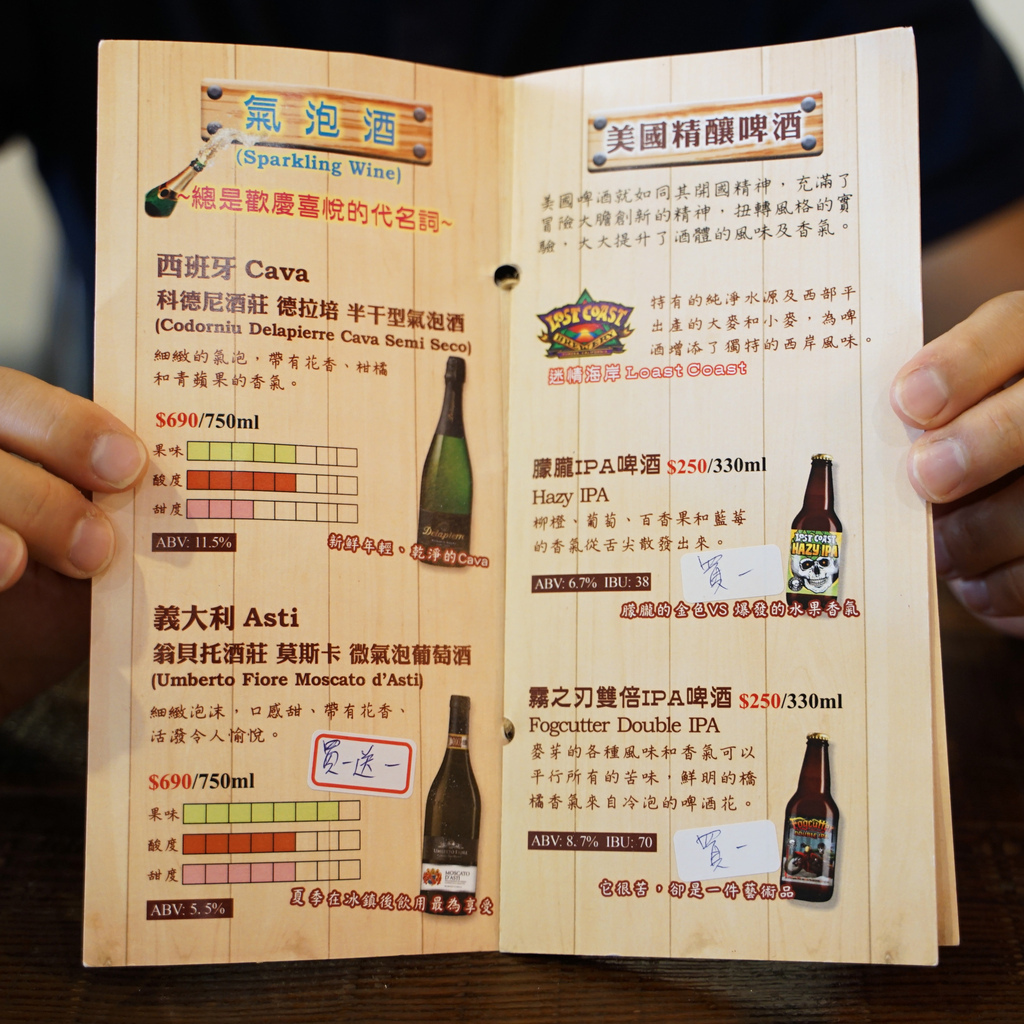 氣泡酒
(Sparkling Wine)
~總是歡慶喜悅的代名詞~
西班牙 Cava
科德尼酒莊 德拉培 半干型氣泡酒
(Codorniu Delapierre Cava Semi Seco)
細緻的氣泡，帶有花香、柑橘
和青蘋果的香氣。
$690/750ml
果味
酸度
甜度
ABV: 11.5%
Delapierre
新鮮年輕、乾淨的Cava
義大利 Asti
翁貝托酒莊 莫斯卡 微氣泡葡萄酒
(Umberto Fiore Moscato d'Asti)
細緻泡沫，口感甜、帶有花香、
活潑令人愉悅。
買一送一
$690/750ml
果味
酸度
甜度
MOSCATO
D'ASTI
ABV: 5.5%
夏季在冰鎮後飲用最為享受
美國精釀啤酒
美國啤酒就如同其開國精神，充滿了
冒險大膽創新的精神，扭轉風格的實
驗，大大提升了酒體的風味及香氣。
LOST COAST
BREWERY
特有的純淨水源及西部平
出產的大麥和小麥，為啤
酒增添了獨特的西岸風味。
迷情海岸 Loast Coast
朦朧IPA啤酒 $250/330ml
Hazy IPA
柳橙、葡萄、百香果和藍莓
的香氣從舌尖散發出來。
買一
LOST COAST
HAZY IPA
ABV: 6.7% IBU: 38
朦朧的金色VS 爆發的水果香氣
霧之刃雙倍IPA啤酒 $250/330ml
Fogcutter Double IPA
麥芽的各種風味和香氣可以
平行所有的苦味，鮮明的橋
橘香氣來自冷泡的啤酒花。
Fogcutter
DOUBLE IPA
ABV: 8.7% IBU: 70
買一
它很苦，卻是一件藝術品